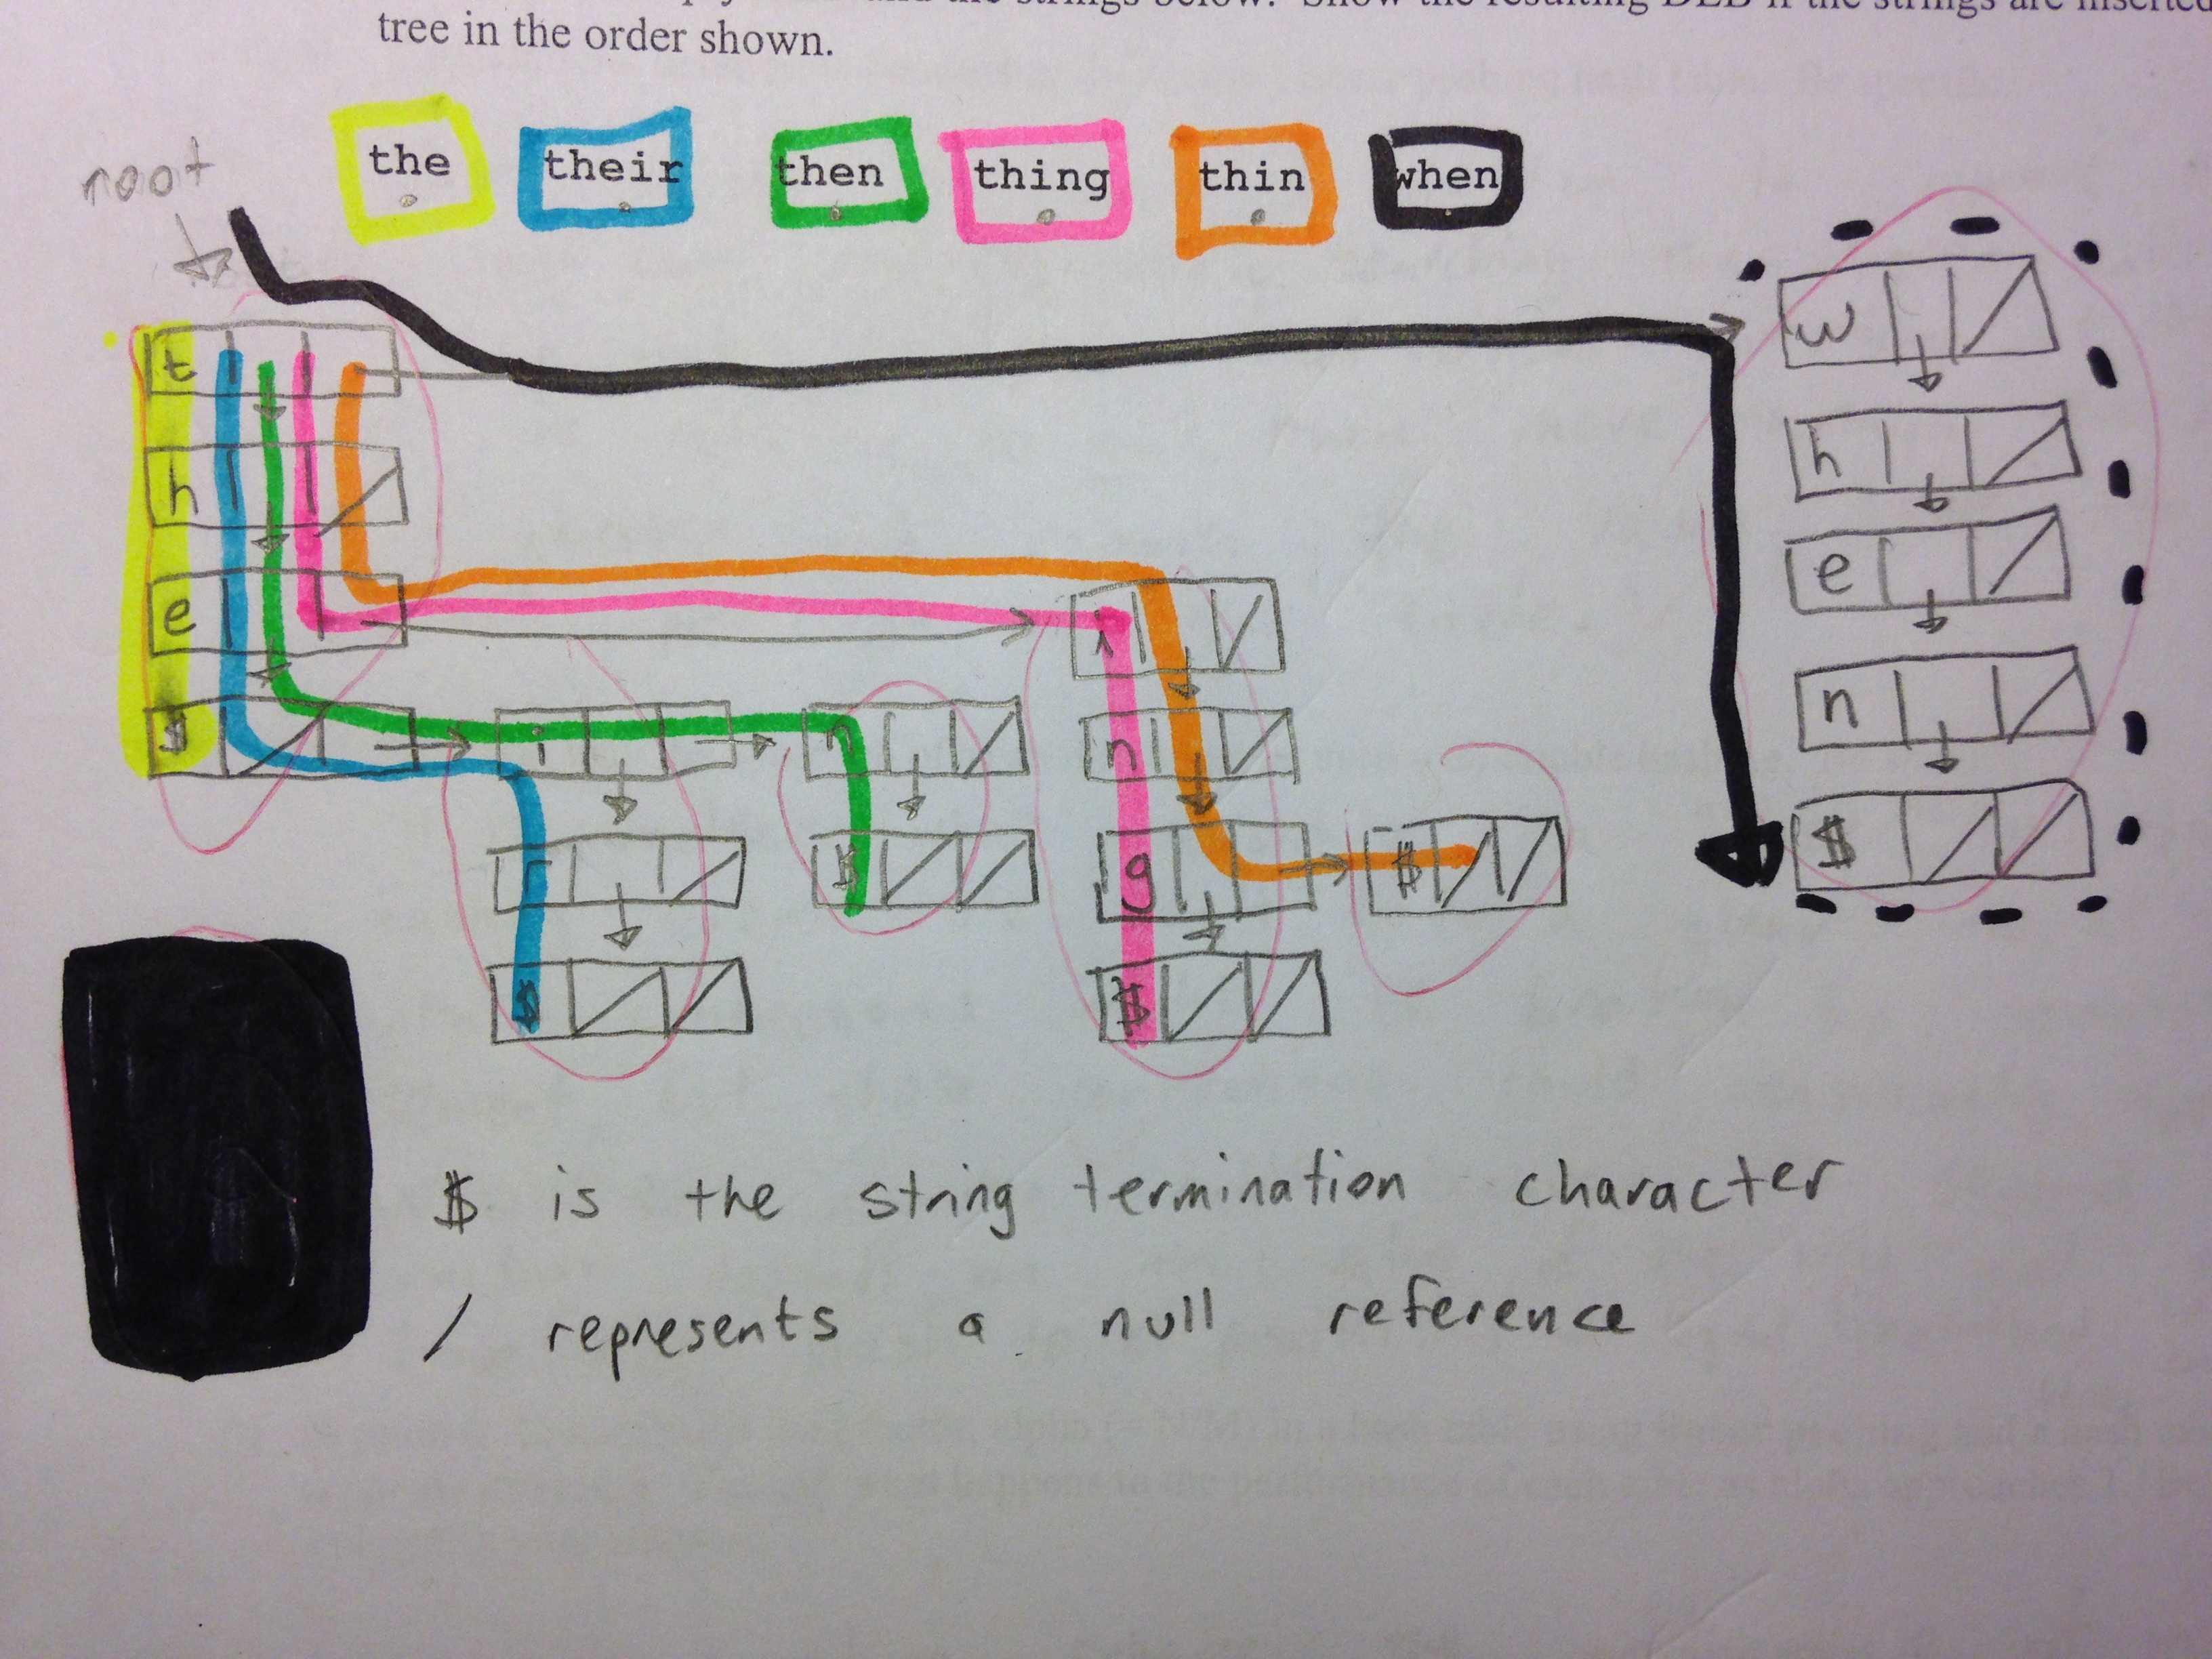 the strings below. Show the resulting DLB if the strings are inserted
tree in the order shown.
the their then thing thin when
root
t w
h h
e i e
$ i n n n
r $ g $ $
$ $
$ is the string termination character
/ represents a null reference